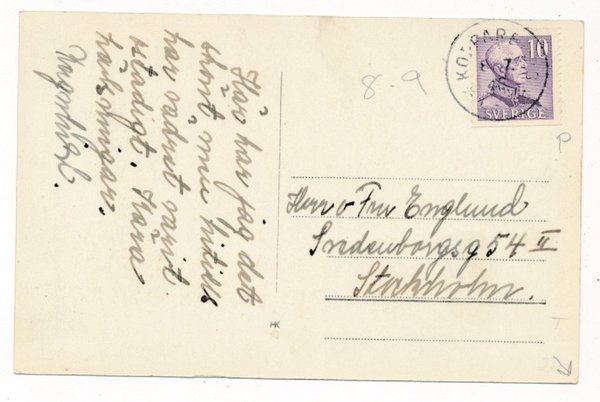 Här har jag det
skönt men hittills
har vädret varit
ostadigt. Kära
hälsningar.
8-9
KOPPARE
10
SVERIGE
P
Herr o Fru Englund
Swedenborgsg 54 II
Stockholm.
HK